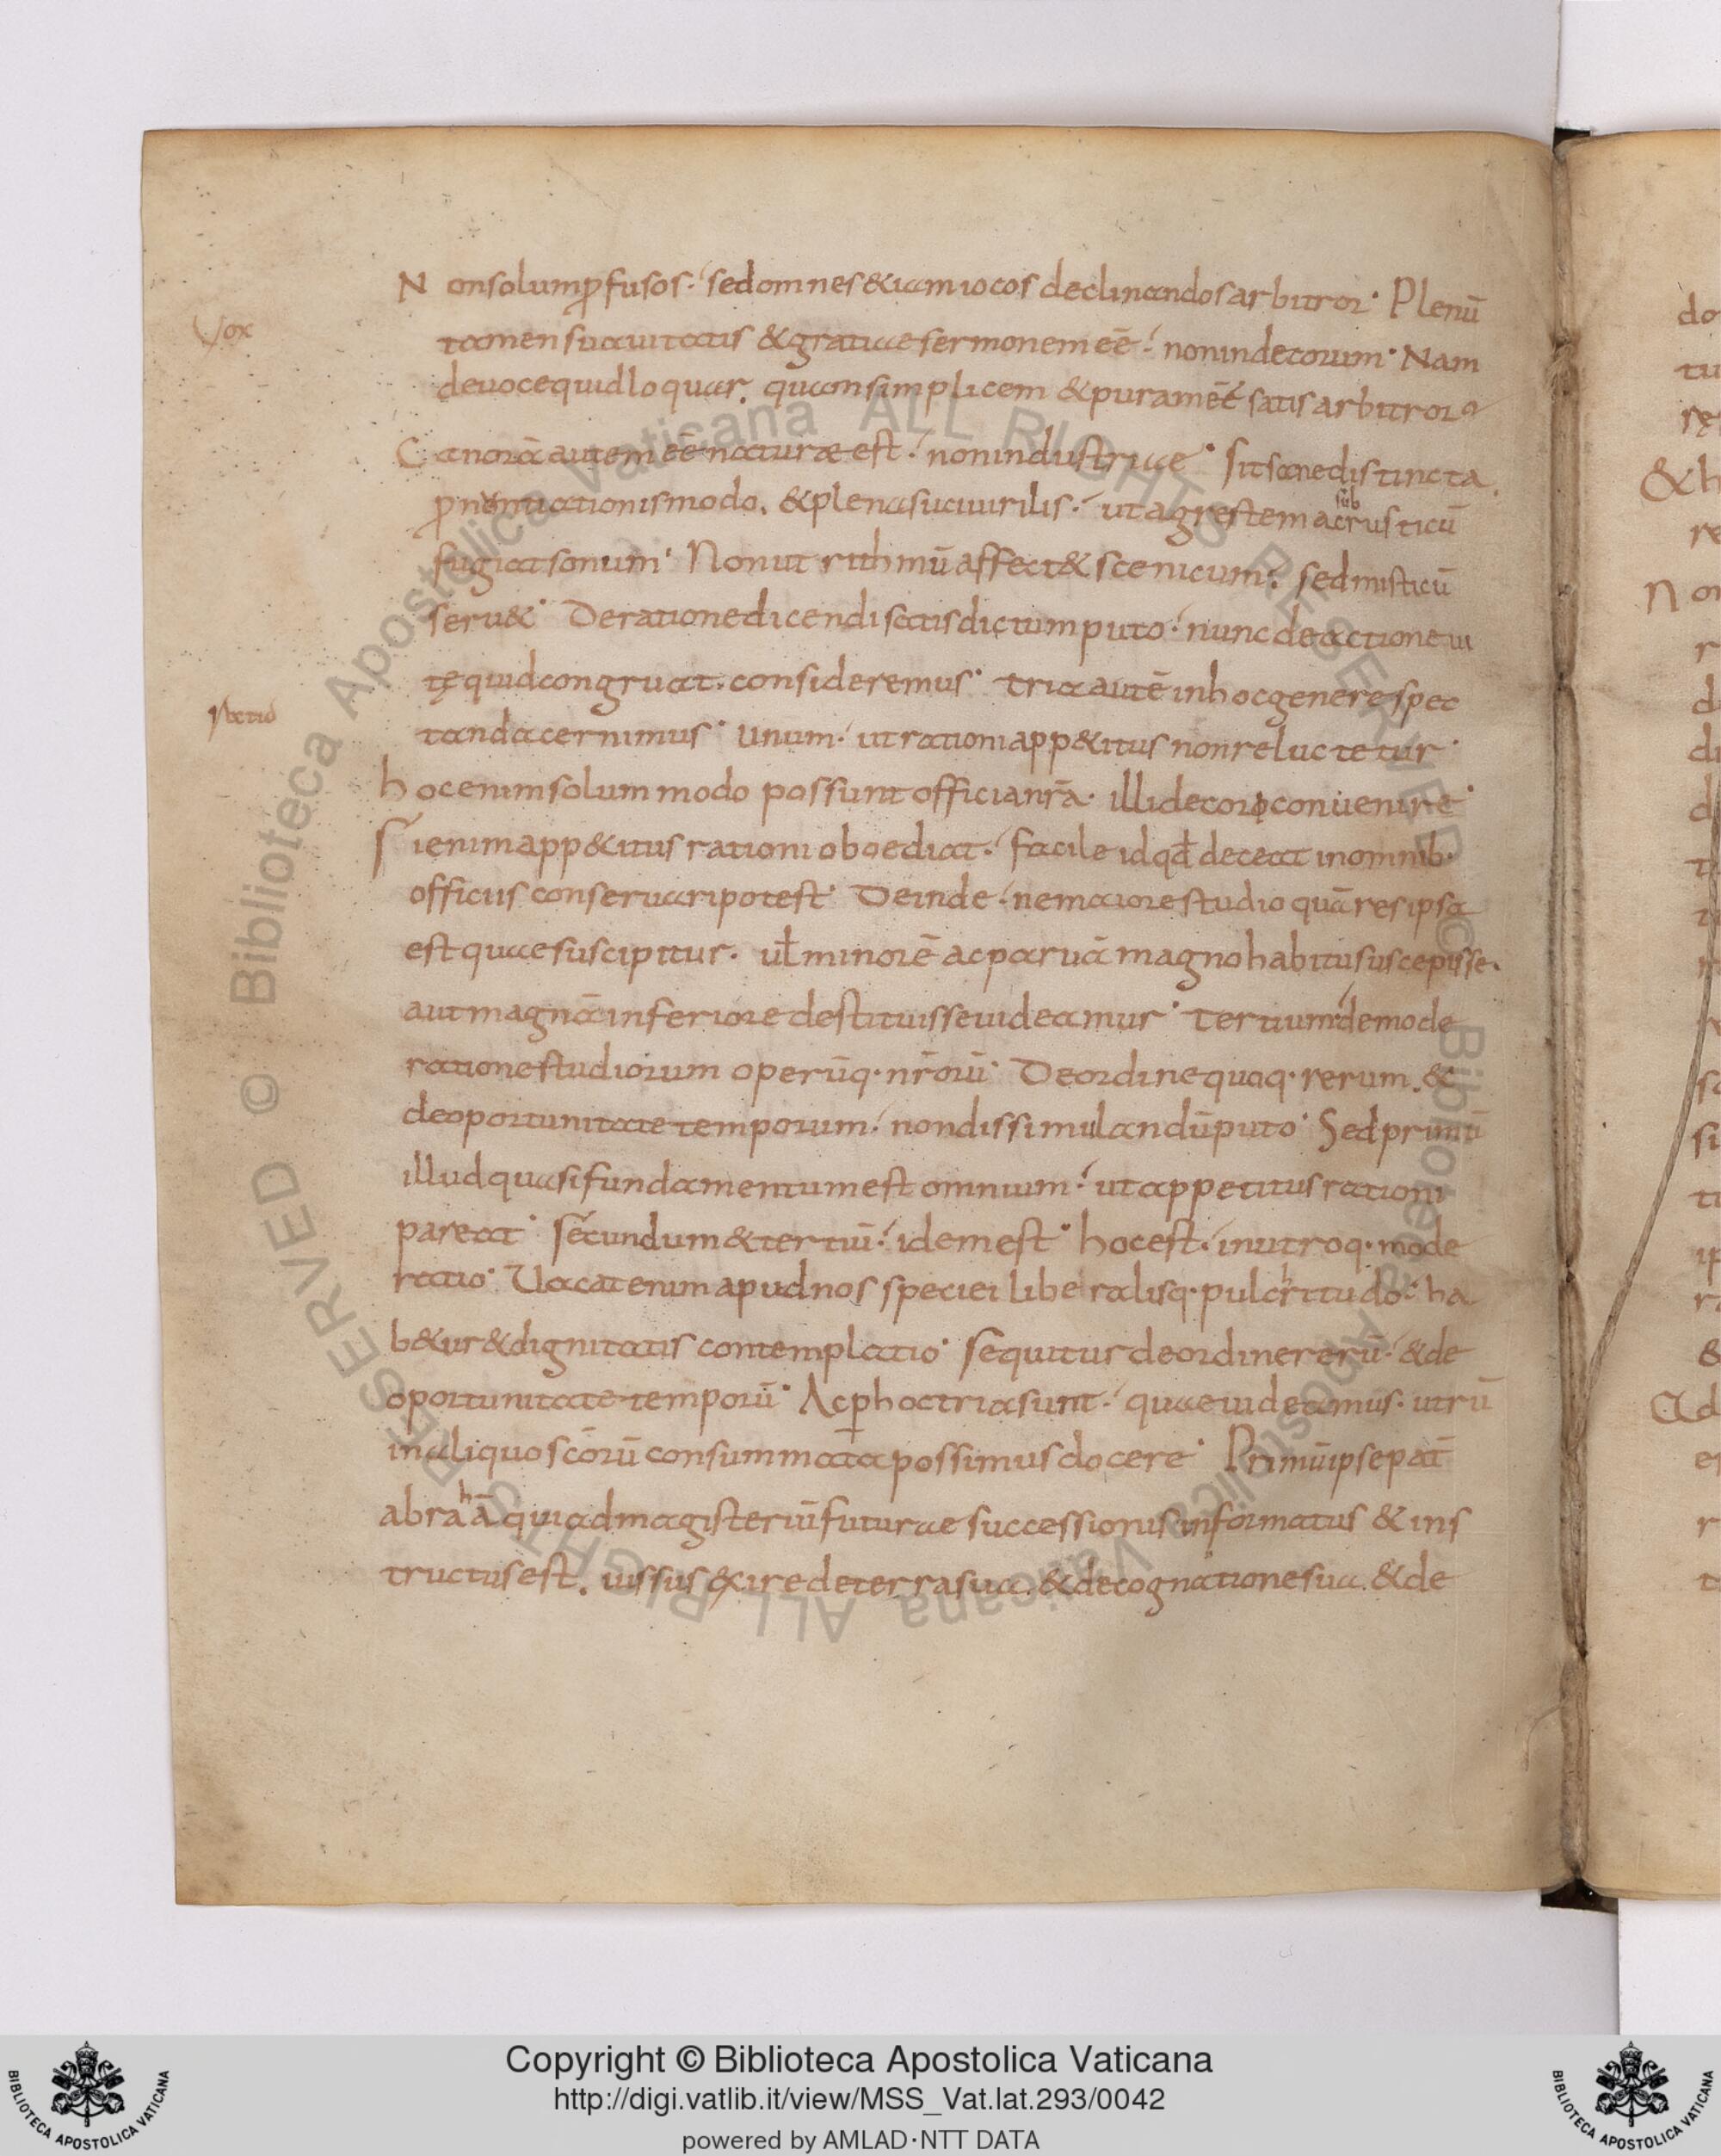 Non solum ꝓfusos· sed omnes & iam iocos declinandos arbitror· Plenū
Vox
tamen suauitatis & gratiae sermonem eē· non indecorum· Nam
de uoce quid loquar. quam simplicem & puram eē satis arbitror
Canorā autem eē naturæ est· non industriae· Sit sane distincta
ꝓnuntiationis modo. & plena suci uirilis· ut agrestem ac subrusticū
fugiat sonum· Non ut rithmū affect& scenicum. sed misticū
seru&· De ratione dicendi satis dictum puto· nunc de actione ui
tę quid congruat. consideremus· tria autē in hoc genere spec
Actio
tanda cernimus· Unum· ut rationi app&itus non reluctetur·
hoc enim solummodo possunt officia nr̄a· illi decoro conuenire·
Si enim app&itus rationi oboediat· facile id qd̄ deceat in omnib·
officiis conseruari potest· Deinde· ne maiore studio quā res ipsa
est quae suscipitur· ul̄ minorē ac paruā magno habitu suscepisse·
aut magnā inferiore destituisse uideamur· Tertium· de mode
ratione studiorum operūq· nr̄orū· De ordine quoq· rerum. &
de oportunitate temporum· non dissimulandū puto· Sed primū
illud quasi fundamentum est omnium· ut appetitus rationi
pareat· Secundum & tertiū· idem est· hoc est· in utroq· mode
ratio· Uacat enim apud nos speciei liberalisq· pulchritudo· ha
b&ur & dignitatis contemplatio· Sequitur de ordine rerū· & de
oportunitate temporū· Ac ꝑ hoc tria sunt· quae uideamus· utrū
in aliquo sc̄orū consummata possimus docere· Primū ipse pat̄
abrahā qui ad magisteriū futurae successionis informatus & ins
tructus est. iussus exire de terra sua. & de cognatione sua. & de
Copyright © Biblioteca Apostolica Vaticana
http://digi.vatlib.it/view/MSS_Vat.lat.293/0042
powered by AMLAD·NTT DATA
BIBLIOTECA APOSTOLICA VATICANA
BIBLIOTECA APOSTOLICA VATICANA
© Biblioteca Apostolica Vaticana ALL RIGHTS RESERVED
© Biblioteca Apostolica Vaticana ALL RIGHTS RESERVED